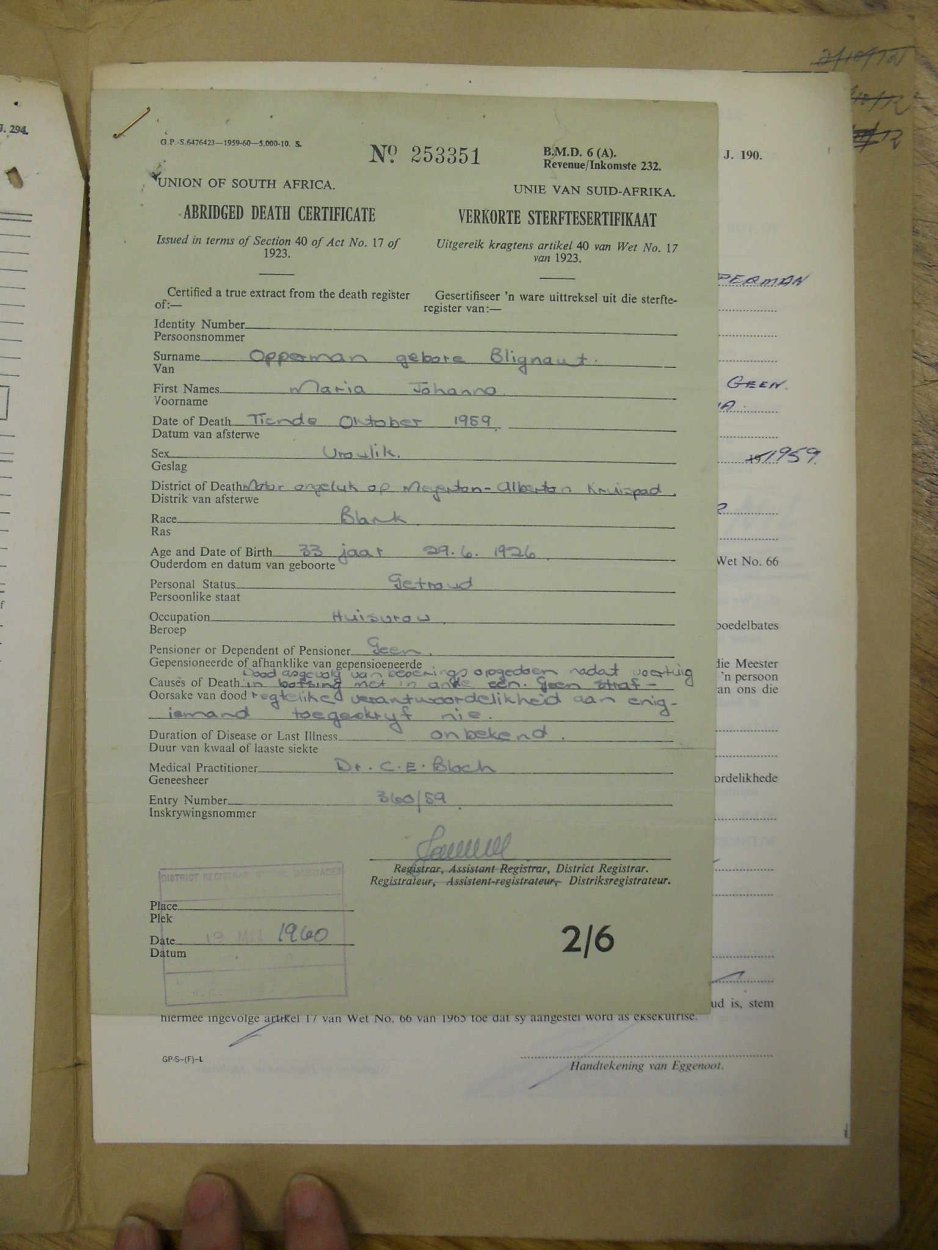 J. 294.
2/10/72
G.P.-S.6476423—1959-60—5,000-10. S.
No 253351
B.M.D. 6 (A).
Revenue/Inkomste 232.
J. 190.
UNION OF SOUTH AFRICA.
UNIE VAN SUID-AFRIKA.
ABRIDGED DEATH CERTIFICATE
VERKORTE STERFTESERTIFIKAAT
Issued in terms of Section 40 of Act No. 17 of
1923.
Uitgereik kragtens artikel 40 van Wet No. 17
van 1923.
PERMAN
Certified a true extract from the death register
of:—
Gesertifiseer 'n ware uittreksel uit die sterfte-
register van:—
Identity Number
Persoonsnommer
Surname Opperman gebore Blignaut.
Van
GEEN.
First Names Maria Johanna
Voorname
Date of Death Tiende Oktober 1959
Datum van afsterwe
Sex Vroulik.
Geslag
1959
District of Death Motor ongeluk op Meyerton-Alberton Kruispad.
Distrik van afsterwe
Race Blank
Ras
Age and Date of Birth 33 jaar 29.6.1926
Ouderdom en datum van geboorte
Wet No. 66
Personal Status Getroud
Persoonlike staat
Occupation Huisvrou
Beroep
boedelbates
Pensioner or Dependent of Pensioner Geen.
Gepensioneerde of afhanklike van gepensioeneerde
die Meester
'n persoon
an ons die
Dood as gevolg van beserings opgedoen nadat voertuig
Causes of Death in botsing met 'n ander een. Geen straf-
Oorsake van dood regtelike verantwoordelikheid aan enig-
iemand toegeskryf nie.
Duration of Disease or Last Illness onbekend.
Duur van kwaal of laaste siekte
Medical Practitioner Dr. C. E. Bloch
Geneesheer
ordelikhede
Entry Number 360/59
Inskrywingsnommer
Registrar, Assistant Registrar, District Registrar.
Registrateur, Assistent-registrateur, Distriksregistrateur.
DISTRICT REGISTRAR
Place
Plek
Date 1960
Datum
2/6
ud is, stem
hiermee ingevolge artikel 17 van Wet No. 66 van 1965 toe dat sy aangestel word as eksekutrise.
GP-S-(F)-L
Handtekening van Eggenoot.